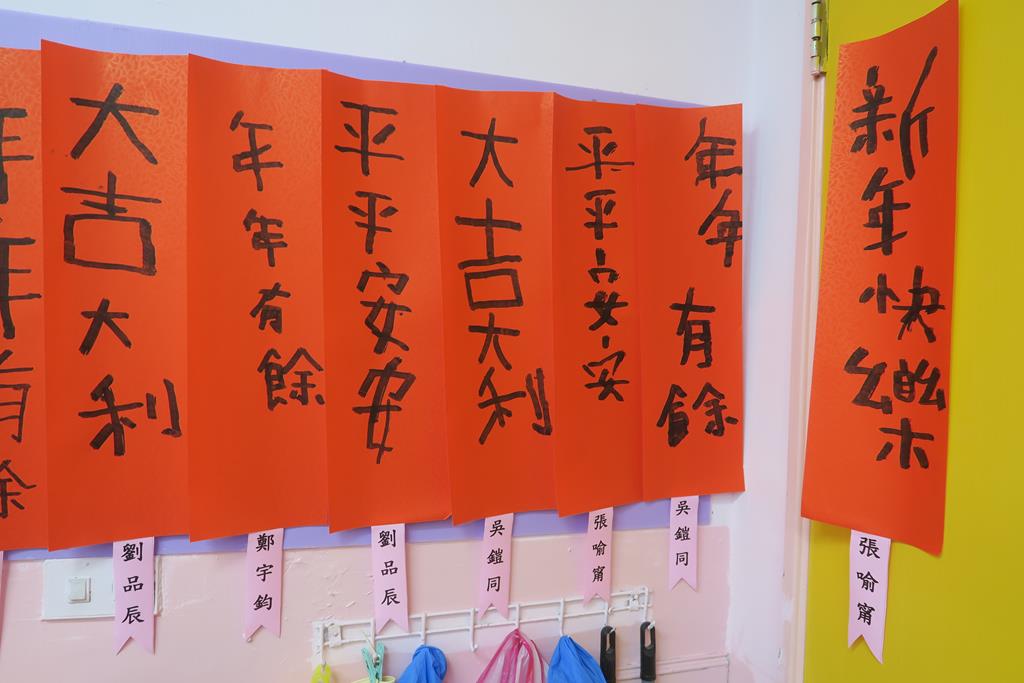 大吉大利
年年有餘
平平安安
大吉大利
平平安安
年年有餘
新年快樂
劉品辰
鄭宇鈞
劉品辰
吳鎧同
張喻甯
吳鎧同
張喻甯